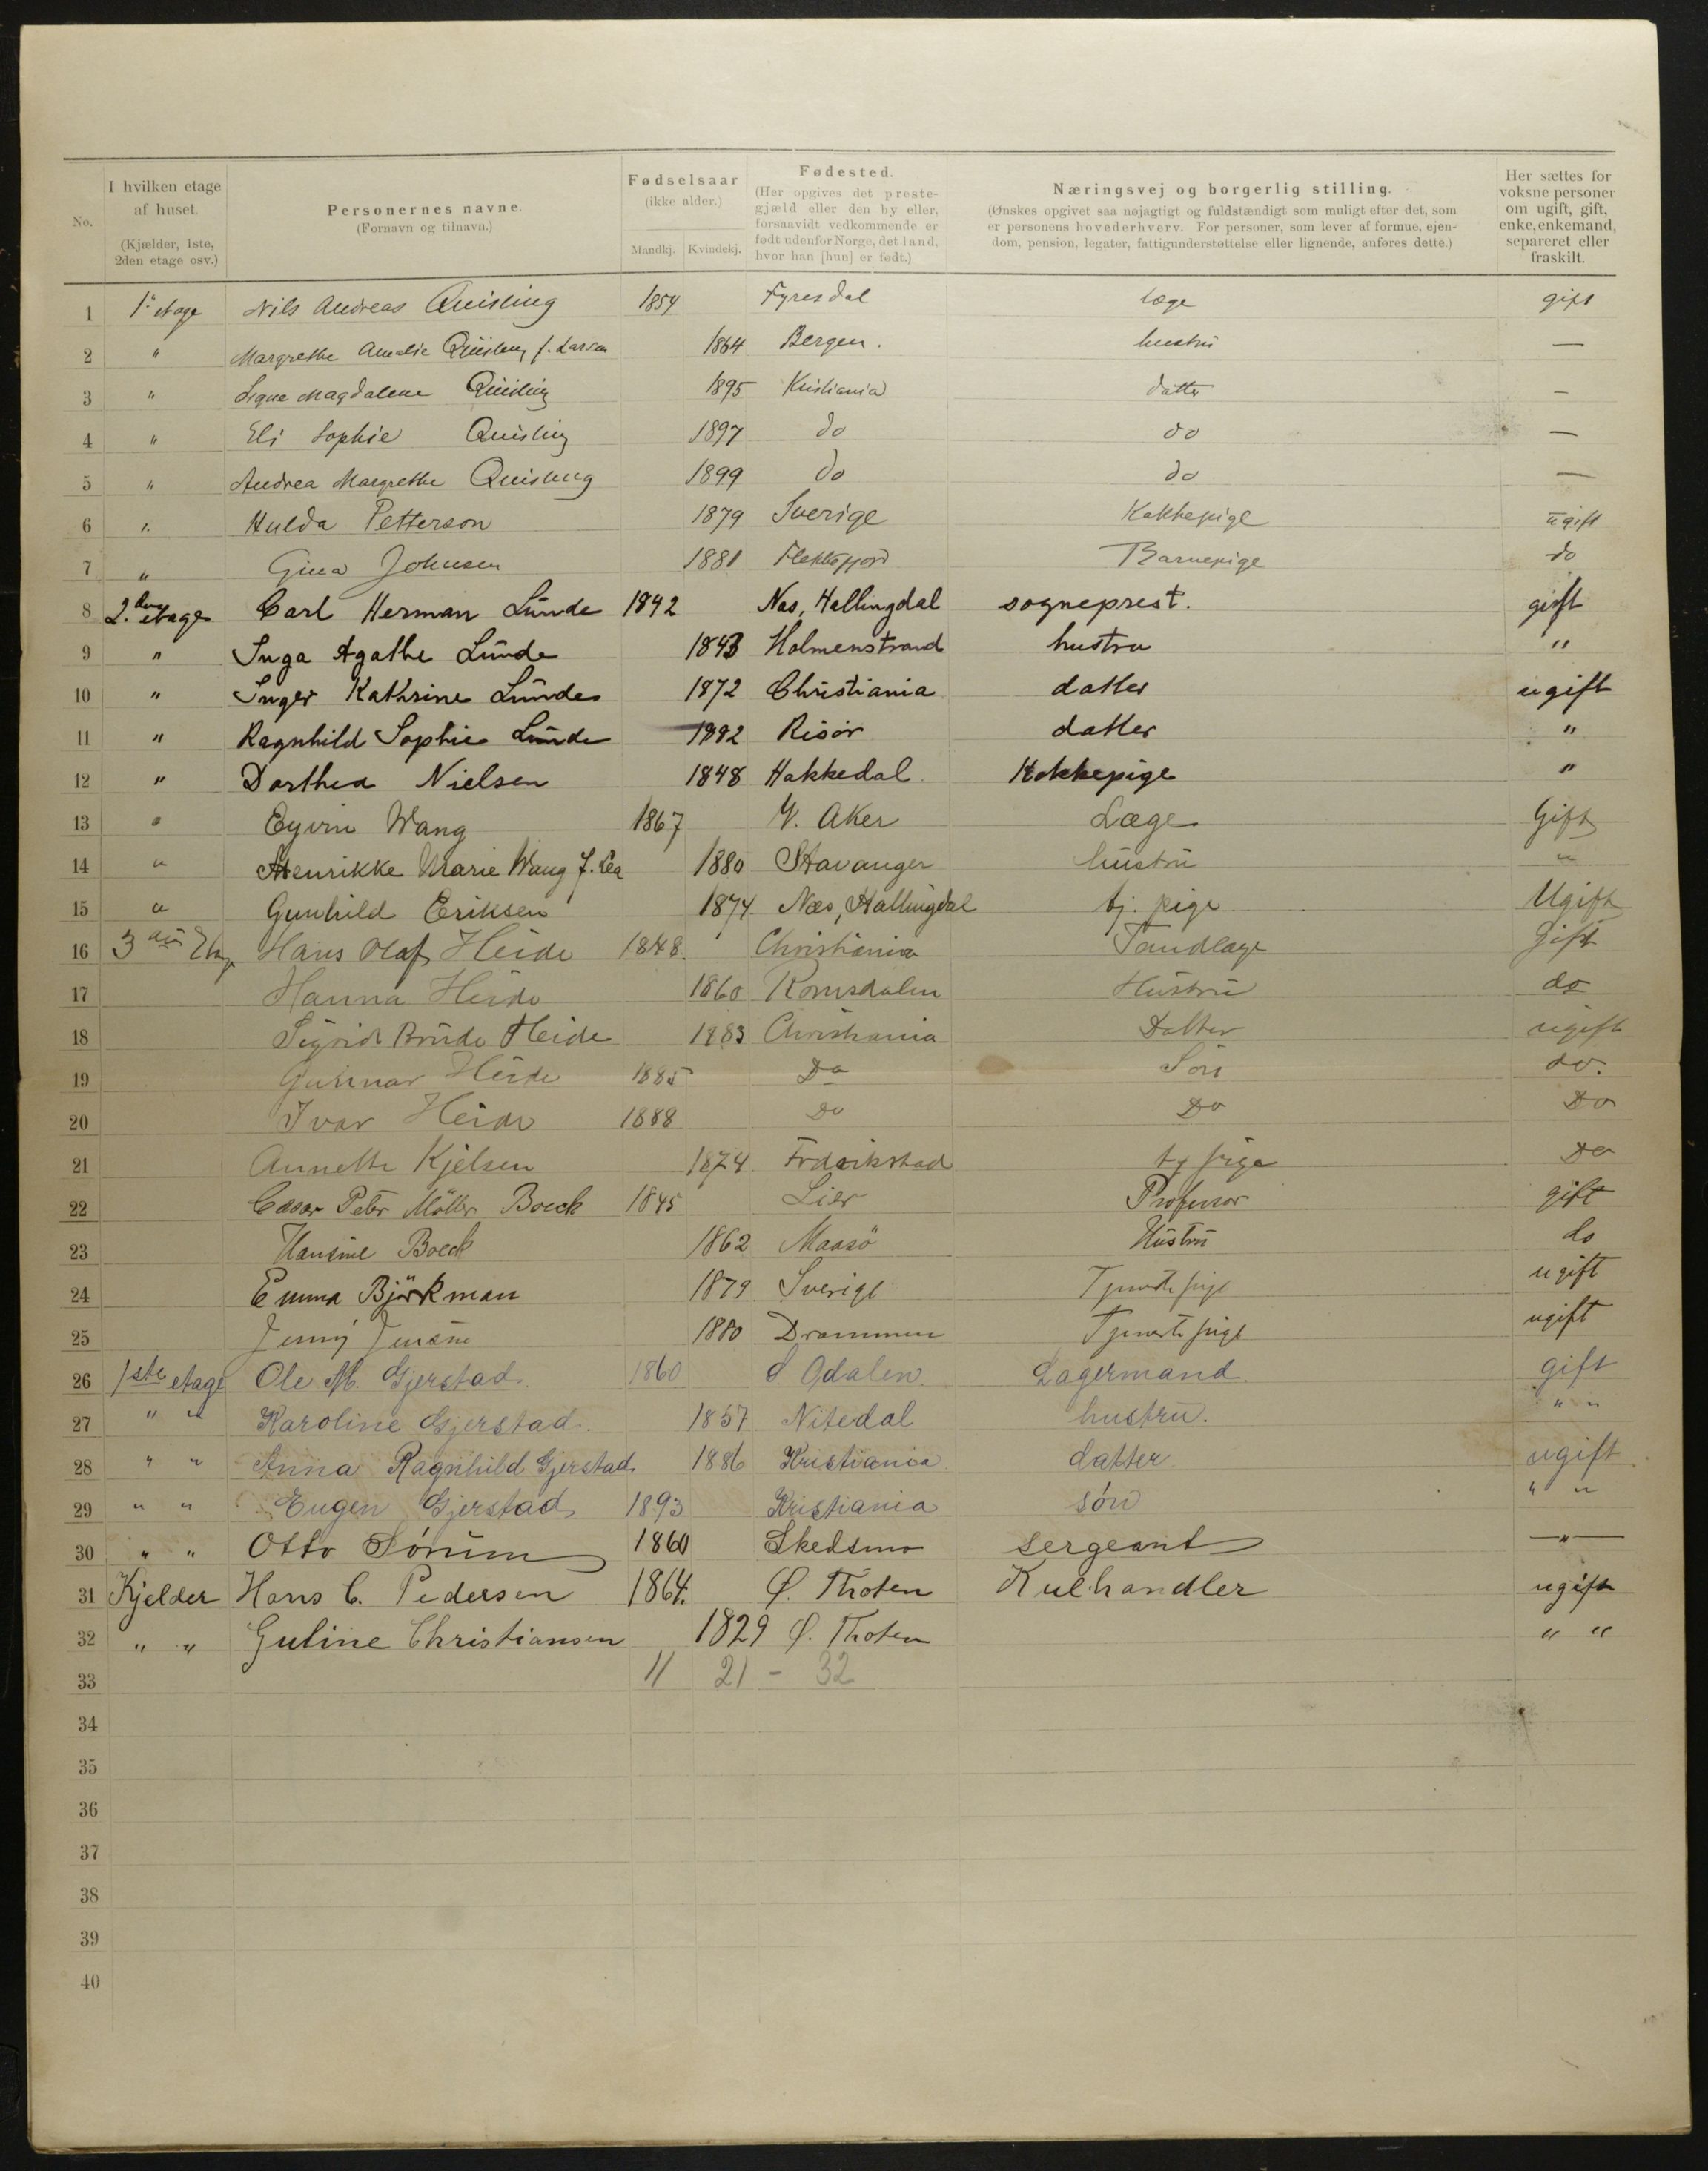 No. I hvilken etage af huset. (Kjælder, 1ste, 2den etage osv.) Personernes navne. (Fornavn og tilnavn.) Fødselsaar (ikke alder.) Mandkj. Kvindekj. Fødested. (Her opgives det prestegjæld eller den by eller, forsaavidt vedkommende er født udenfor Norge, det land, hvor han [hun] er født.) Næringsvej og borgerlig stilling. (Ønskes opgivet saa nøjagtigt og fuldstændigt som muligt efter det, som er personens hovederhverv. For personer, som lever af formue, ejendom, pension, legater, fattigunderstøttelse eller lignende, anføres dette.) Her sættes for voksne personer om ugift, gift, enke, enkemand, separeret eller fraskilt.
1 1ste etage Nils Andreas Quisling 1854 Fyresdal læge gift
2 " Margrethe Amalie Quisling f. Larsen 1864 Bergen. hustru —
3 " Signe Magdalene Quisling 1895 Kristiania datter —
4 " Eli Sophie Quisling 1897 do do —
5 " Andrea Margrethe Quisling 1899 do do —
6 " Hulda Petterson 1879 Sverige Kokkepige ugift
7 " Gina Johnsen 1881 Flekkefjord Barnepige do
8 2.den etage Carl Herman Lunde 1842 Nas, Hallingdal sogneprest. gift
9 " Inga Agathe Lunde 1843 Holmenstrand hustru "
10 " Inger Kathrine Lunde 1872 Christiania datter ugift
11 " Ragnhild Sophie Lunde 1882 Risör datter "
12 " Dorthea Nielsen 1848 Hakkedal Kokkepige "
13 " Eyvin Wang 1867 V. Aker Læge Gift
14 " Henrikke Marie Wang f. Lea 1880 Stavanger hustru "
15 " Gunhild Eriksen 1874 Næs, Hallingdal tj. pige Ugift
16 3die Etag Hans Olaf Heide 1848. Christiania Tandlæge Gift
17 Hanna Heide 1860 Romsdalen Hustru do
18 Sigrid Brude Heide 1883 Christiania Datter ugift
19 Gunnar Heide 1885 Do Sön do.
20 Ivar Heide 1888 Do Do Do
21 Annette Kjelsen 1874 Fredrikstad tj pige Do
22 Cæsar Peter Möller Boeck 1845 Lier Professor gift
23 Hansine Boeck 1862 Maasö Hustru do
24 Emma Björkman 1879 Sverige Tjenestepige ugift
25 Jenny Jensen 1880 Drammen Tjenestepige ugift
26 1ste etage Ole M. Gjerstad. 1860 S Odalen. Lagermand. gift
27 " " Karoline Gjerstad. 1857 Nitedal hustru. " "
28 " " Anna Ragnhild Gjerstad 1886 Kristiania datter ugift
29 " " Eugen Gjerstad 1893 Kristiania sön " "
30 " " Otto Sörum 1860 Skedsmo sergeant —"—
31 Kjelder Hans C. Pedersen 1864. Ø. Thoten Kulhandler ugift
32 " " Guline Christiansen 1829 Ø. Thoten " "
33 11 21 - 32
34
35
36
37
38
39
40